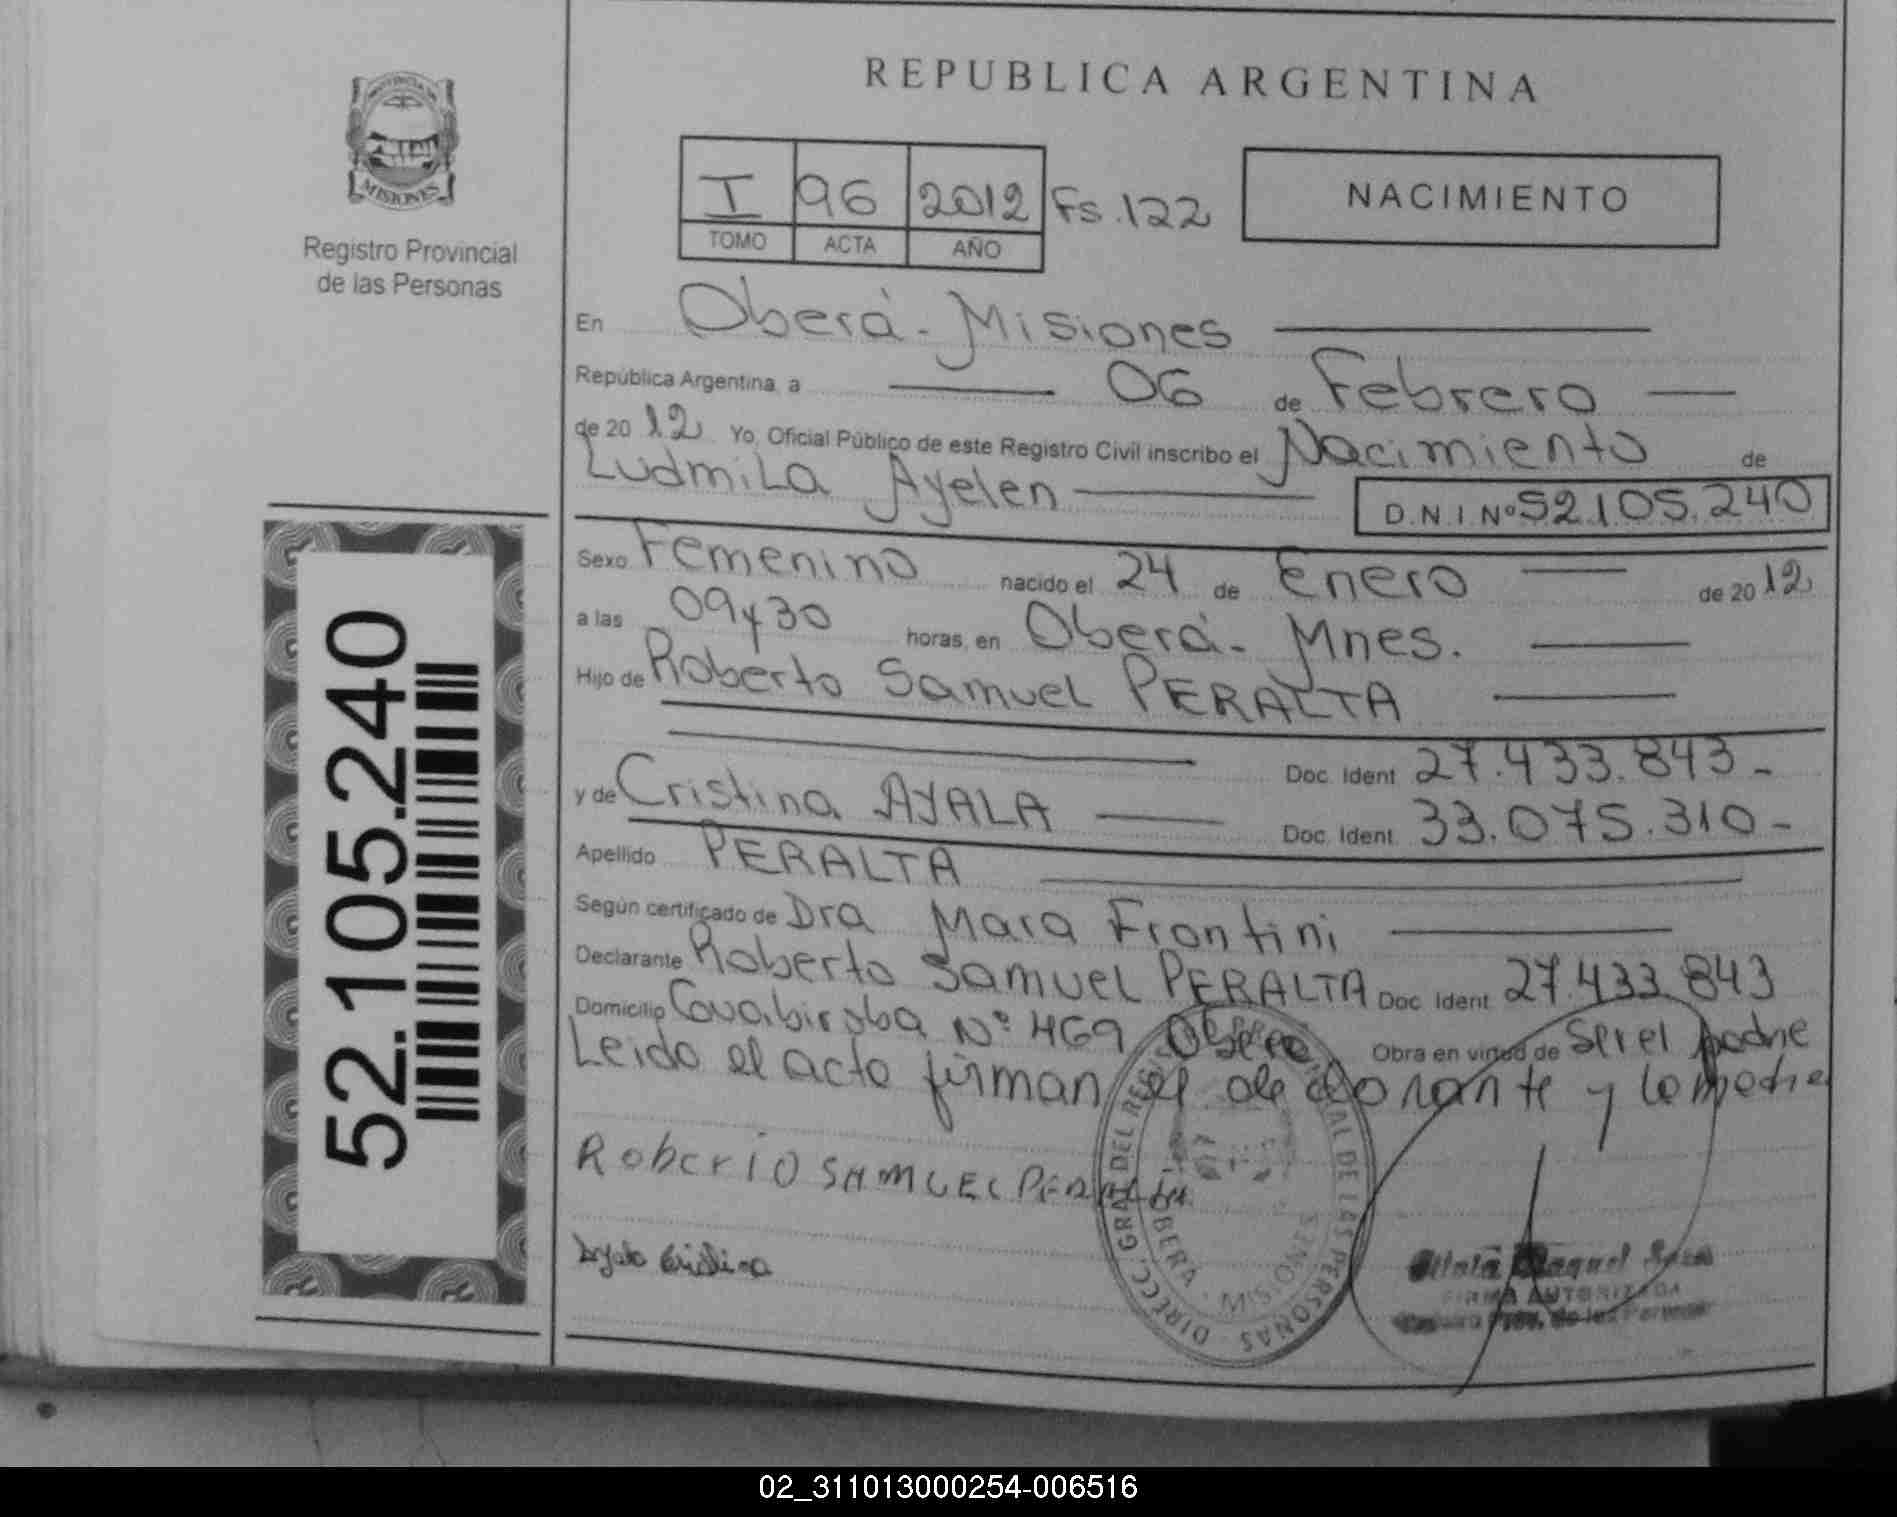 REPUBLICA ARGENTINA
PROVINCIA DE
MISIONES
Registro Provincial
de las Personas
I 96 2012 Fs.122
TOMO ACTA AÑO
NACIMIENTO
En Oberá - Misiones
República Argentina, a 06 de Febrero
de 20 12 Yo, Oficial Público de este Registro Civil inscribo el Nacimiento de
Ludmila Ayelen
D.N.I. Nº 52.105.240
Sexo Femenino nacido el 24 de Enero de 20 12
a las 09y30 horas, en Oberá - Mnes.
Hijo de Roberto Samuel PERALTA
Doc. Ident 27.433.843-
y de Cristina AYALA Doc. Ident. 33.075.310-
Apellido PERALTA
Según certificado de Dra Mara Frontini
Declarante Roberto Samuel PERALTA Doc Ident 27.433 843
Domicilio Nº 469 Obera Obra en virtud de Ser el padre
Leido el acta firman el declarante y la madre
RobertO SAMUEL PERALTA
Ayala Cristina
DIRECC. GRAL DEL REGIST PROVINCIAL DE LAS PERSONAS
OBERA - MISIONES
Raquel
FIRMA AUTORIZADA
Prov. de las Personas
52.105.240
02_311013000254-006516